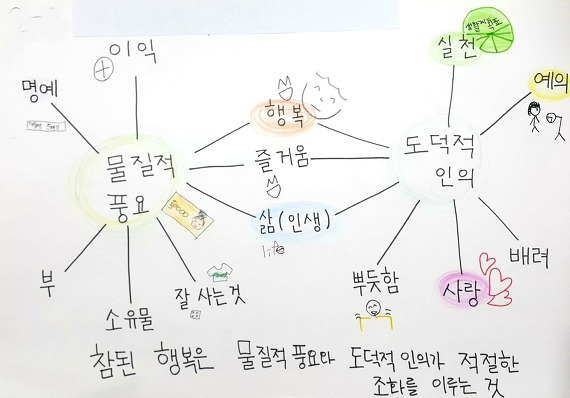 이익
명예
물질적
풍요
부
소유물
잘 사는것
50000
행복
즐거움
삶(인생)
life
도덕적
인의
실천
생활계획표
예의
배려
사랑
뿌듯함
참된 행복은 물질적 풍요와 도덕적 인의가 적절한
조화를 이루는 것